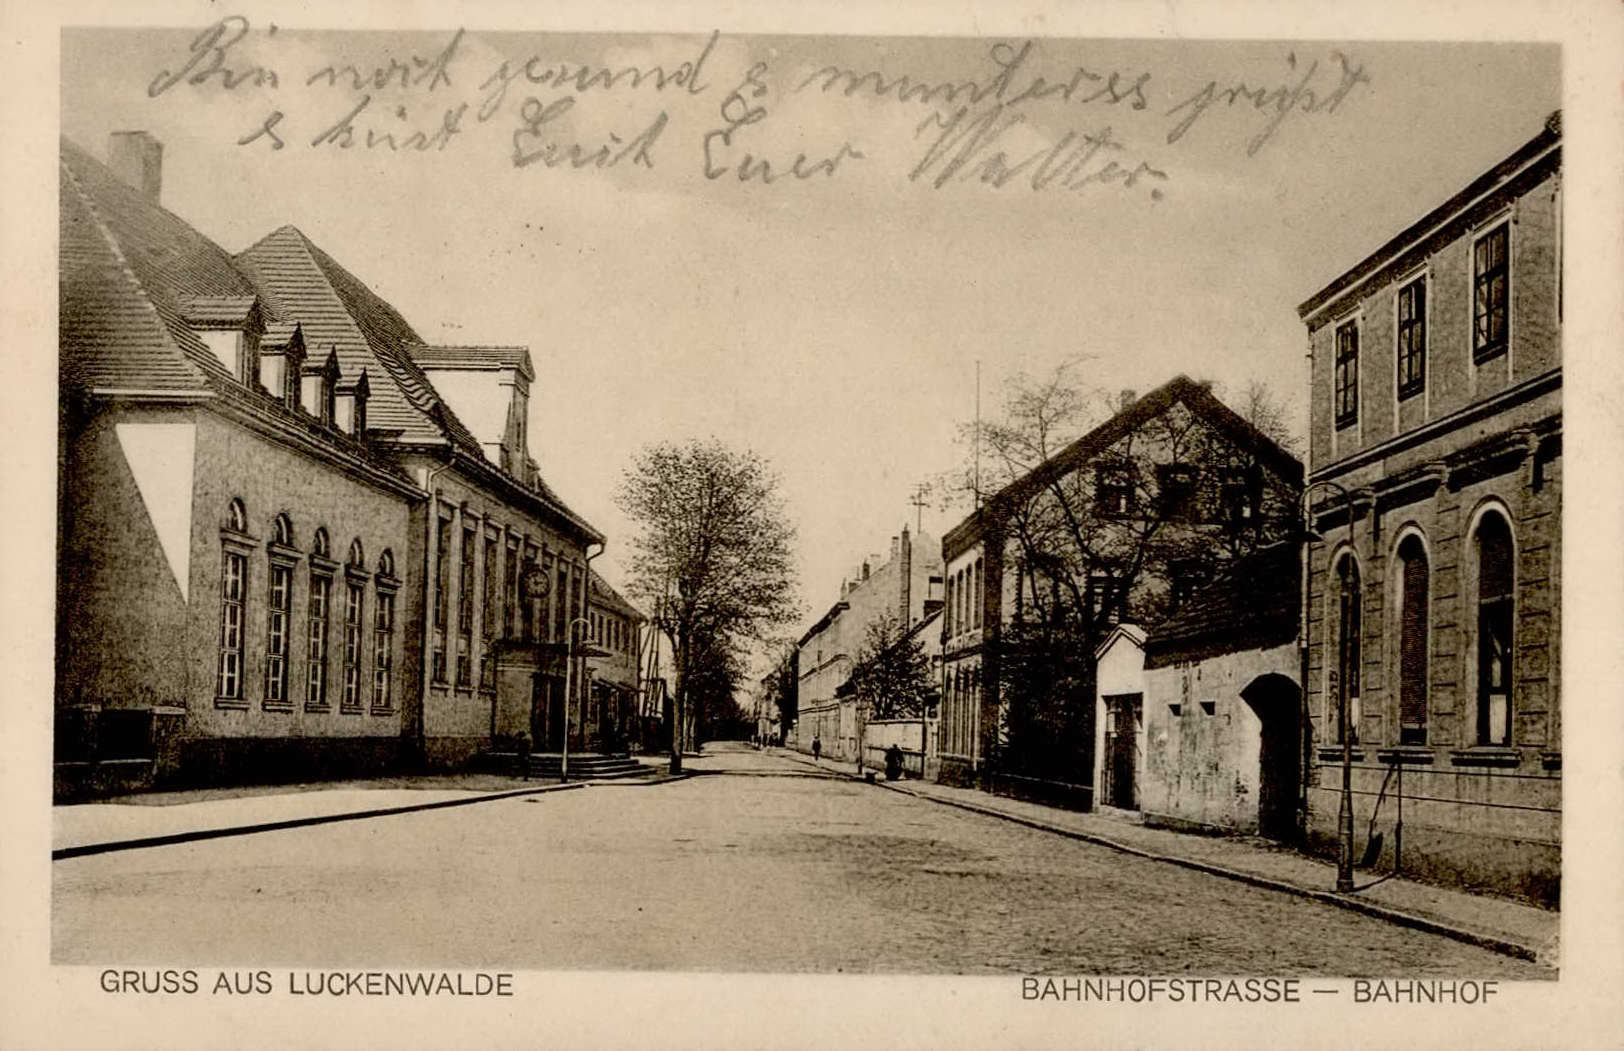 Bin noch gesund & munter es grüßt
& küsst Euch Euer Walter.
GRUSS AUS LUCKENWALDE
BAHNHOFSTRASSE — BAHNHOF